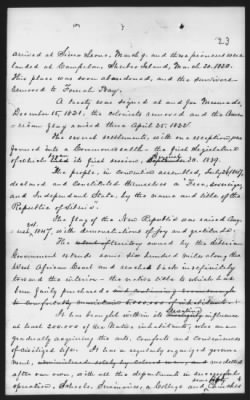 23
arrived at Sierra Leone, March 9. and these pioneers were
landed at Campelar, Sherbro Island, March 20. 1820.
This place was soon abandoned, and the survivors
removed to Fourah Bay.
A treaty was signed at and for Mesurado,
December 15, 1821, the colonists removed and the Amer-
ican flag raised there April 25. 1822.
The several settlements, with one exception, were
formed into a Commonwealth - the first Legislature
of which its first session, 1839.
The people, in convention assembled, July 26, 1847,
declared and constituted themselves a Free, Sovereign
and Independent State, by the name and title of the
Republic of Liberia.
The flag of the New Republic was raised Aug-
ust, 1847. with demonstrations of joy and gratitude.
The territory owned by the Liberian
Government extends some six hundred miles along the
West African Coast and reaches back indefinitely
toward the interior - the native title to which has
been fairly purchased
It has brought within its influence
at least 200.000 of the Native inhabitants, who are
gradually acquiring the arts, comforts and conveniences
of civilized life. It has a regularly organized govern-
ment, modelled
after our own, with all the departments in successful
operation. Schools, Seminaries, a College and Churches